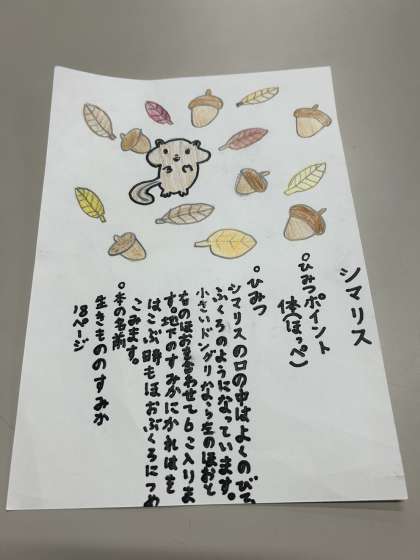 シマリス
。ひみつポイント
体(ほっぺ)
。ひみつ
シマリスの口の中はよくのびて
ふくろのようになっています。
小さいドングリなら左のほおと
右のほおを合わせて6こ入りま
す。地下のすみかにかれはを
はこぶ時もほおぶくろにつめ
こみます。
。本の名前
生きもののすみか
18ページ